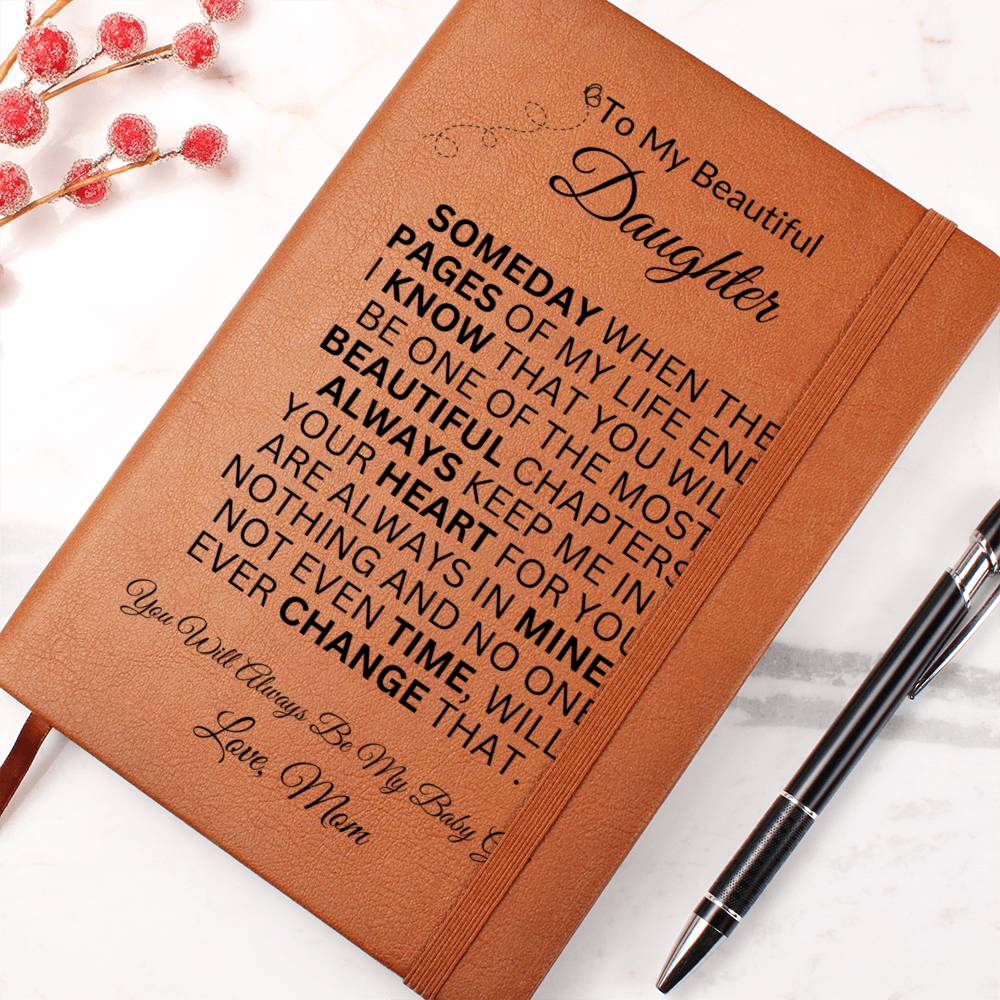 To My Beautiful
Daughter
SOMEDAY WHEN THE
PAGES OF MY LIFE END
I KNOW THAT YOU WILL
BE ONE OF THE MOST
BEAUTIFUL CHAPTERS
ALWAYS KEEP ME IN
YOUR HEART FOR YOU
ARE ALWAYS IN MINE
NOTHING AND NO ONE
NOT EVEN TIME, WILL
EVER CHANGE THAT.
You Will Always Be My Baby G
Love, Mom